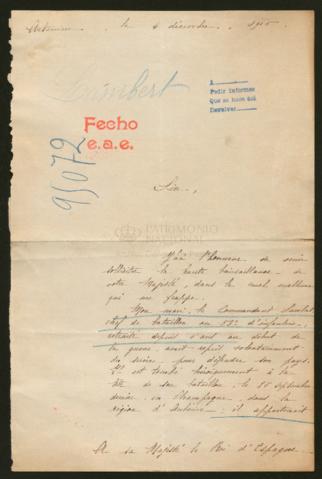 le 6 décembre 1915
Lambert
A
Pedir Informes
Que se hace del
Devolver
Fecho
e.a.e.
95072
Sire,
PATRIMONIO
NACIONAL
J'ai l'honneur de venir
solliciter la haute bienveillance de
votre Majesté, dans le cruel malheur
qui me frappe.
Mon mari, le Commandant
chef de bataillon au d'infanterie,
retraité depuis ans au début de
la guerre, avait repris volontairement
du service pour défendre son pays.
Il est tombé héroïquement à la
tête de son bataillon, le 25 septembre
dernier en Champagne, dans la
région d'Auberive : il appartenait
A sa Majesté le Roi d'Espagne